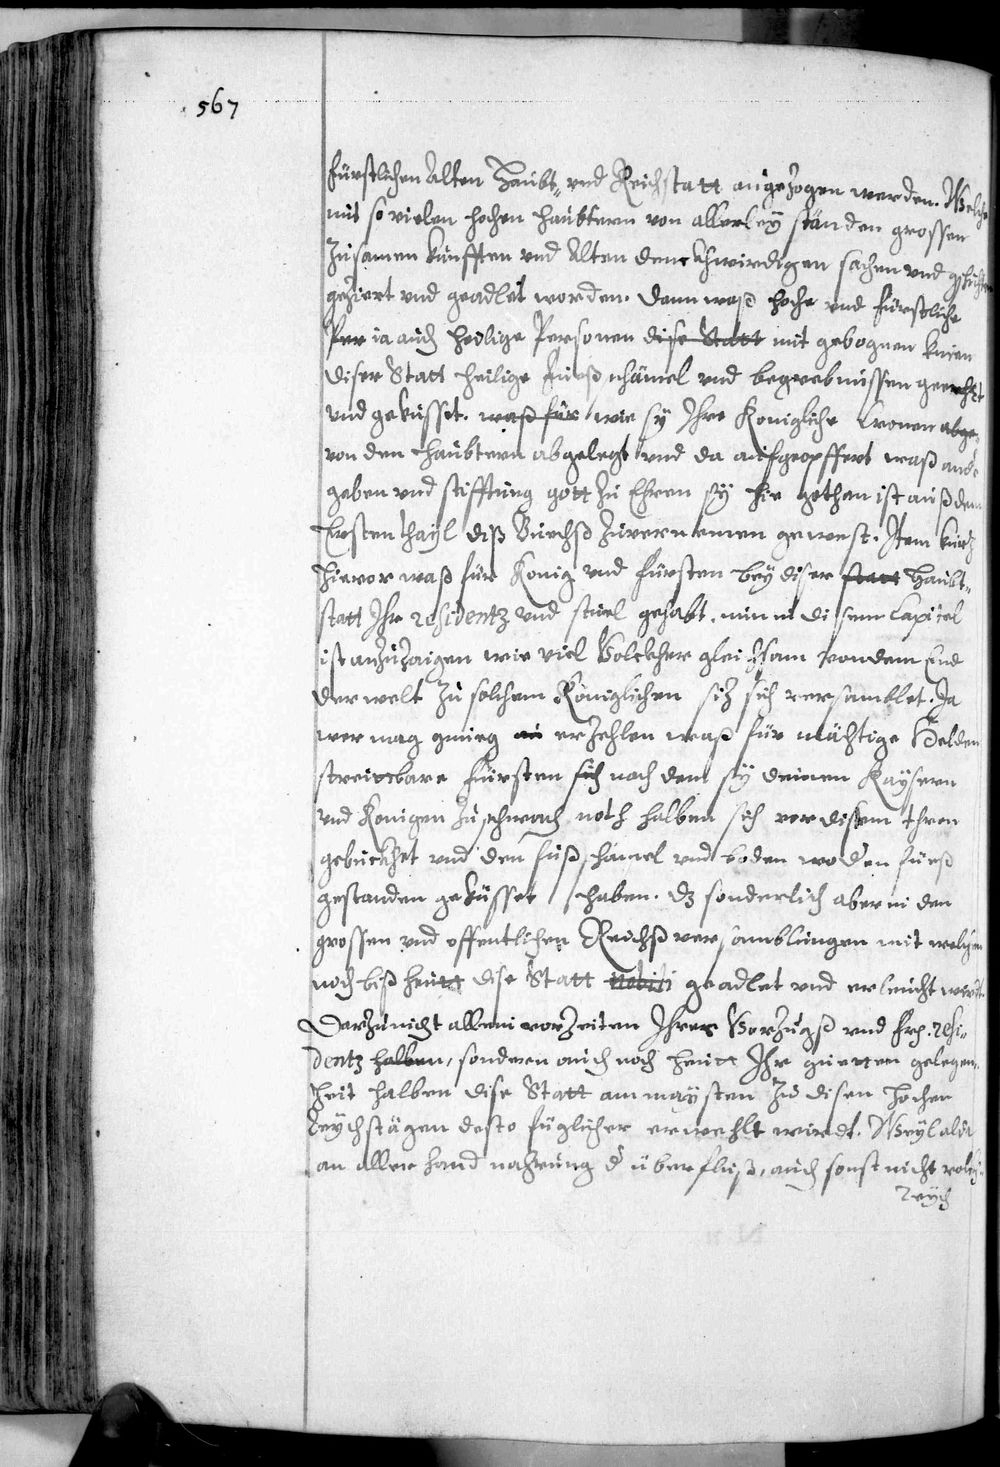 567
fürstlichen Alten Haubt- und Reichstatt angezogen werden. Welche
mit so vielen hochen haubtern von allerley ständen grossen
Zusamen künfften und Alten denckhwirdigen sachen und gschichten
geziert und geadlet worden. dann waß hoche und fürstliche
Per ia auch heilige Personen dise Statt mit gebognen knien
diser Statt heilige fuesß schämel und begrebnussen geert
und geküsset. waß für wie sy Ihre Konigliche Cronen abge-
von den haubtern abgelegt und da aufgeopffert waß and
gaben und stifftung gott zu Ehren sy hie gethan ist auß dem
Ersten thayl diß Buechß zuvernemen gewest. Item kurtz
hievor waß für König und fürsten bey diser statt Haubt-
statt Ihr residentz und stuel gehabt. nun in disem Capitel
ist anzuzaigen wie viel Volckher gleichsam von dem End
der welt zu solchem Königlichen sitz sich versamblet. Ja
wer mag gnueg erzehlen waß für mächtige Helden
streitbare fürsten sich nach dem sy deinen Kaysern
und Konigen zu schwach noth halben sich vor disem thron
gebuckhet und den fuß schämel und boden wo den fueß
gestanden geküsset haben. dz sonderlich aber in den
grossen und offentlichen Reichß versamblungen mit welchen
noch biß heutt dise Statt nobili geadlet und erleucht wirdt.
Darzu nicht allein vorzeiten Ihrer Vorzugß und resi-
dentz halben, sondern auch noch heutt Ihr guetten gelegen-
heit halben dise Statt am maysten zu disen hochen
Reychstägen desto füglicher erwehlt wirdt. Weyl alda
an aller hand nahrung d überfluß, auch sonst nicht